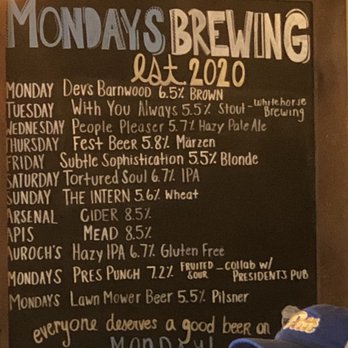 MONDAYS BREWING
est. 2020
MONDAY Dev's Barnwood 6.5% BROWN
TUESDAY With You Always 5.5% Stout - Whitehorse Brewing
WEDNESDAY People Pleaser 5.7% Hazy Pale Ale
THURSDAY Fest Beer 5.8% Märzen
FRIDAY Subtle Sophistication 5.5% Blonde
SATURDAY Tortured Soul 6.7% IPA
SUNDAY THE INTERN 5.6% Wheat
ARSENAL CIDER 8.5%
APIS MEAD 8.5%
AUROCH'S Hazy IPA 6.7% Gluten Free
MONDAYS PRES PUNCH 7.2% FRUITED SOUR - COLLAB W/ PRESIDENTS PUB
MONDAYS Lawn Mower Beer 5.5% Pilsner
everyone deserves a good beer on
MONDAY!